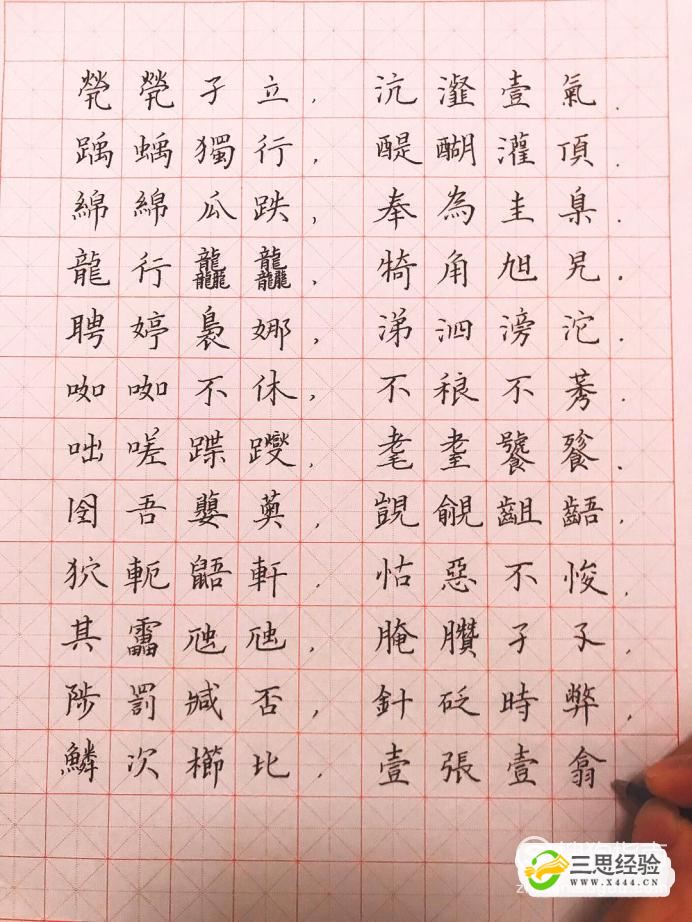 茕茕孑立，沆瀣壹氣．
踽踽獨行，醍醐灌頂．
綿綿瓜瓞，奉為圭臬．
龍行龘龘，犄角旮旯．
聘婷裊娜，涕泗滂沱．
呶呶不休，不稂不莠．
咄嗟蹀躞，耄耋饕餮．
囹圄蘡薁，覬覦齟齬．
狖軛鼯軒，怙惡不悛．
其靁虺虺，腌臢孑孓，
陟罰臧否，針砭時弊，
鱗次櫛比．壹張壹翕
三思经验
WWW.X444.CN